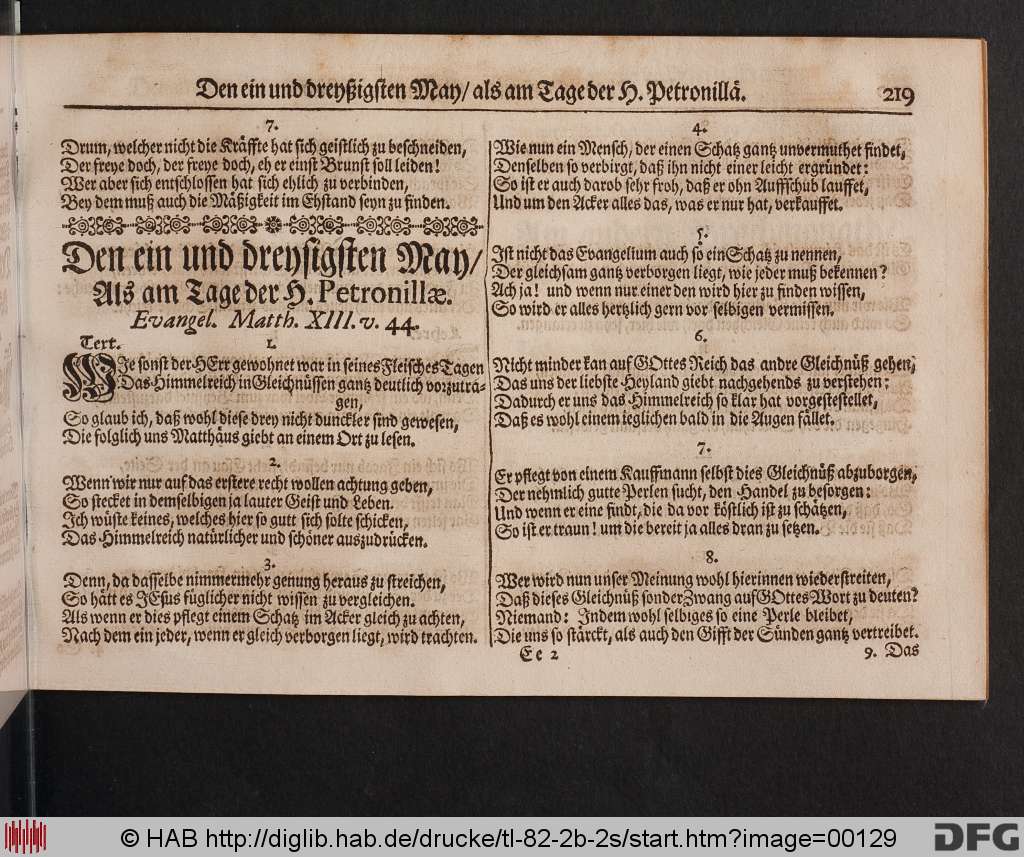 Den ein und dreyßigsten May/ als am Tage der H. Petronillä.
219
7.
Drum, welcher nicht die Kräffte hat sich geistlich zu beschneiden,
Der freye doch, der freye doch, eh er einst Brunst soll leiden!
Wer aber sich entschlossen hat sich ehlich zu verbinden,
Bey dem muß auch die Mäßigkeit im Ehstand seyn zu finden.
Den ein und dreysigsten May/
Als am Tage der H. Petronillæ.
Evangel. Matth. XIII. v. 44.
Text.
1.
WJe sonst der HErr gewohnet war in seines Fleisches Tagen
Das Himmelreich in Gleichnüssen gantz deutlich vorzutra-
gen,
So glaub ich, daß wohl diese drey nicht dunckler sind gewesen,
Die folglich uns Matthäus giebt an einem Ort zu lesen.
2.
Wenn wir nur auf das erstere recht wollen achtung geben,
So stecket in demselbigen ja lauter Geist und Leben.
Ich wüste keines, welches hier so gutt sich solte schicken,
Das Himmelreich natürlicher und schöner auszudrücken.
3.
Denn, da dasselbe nimmermehr genung heraus zu streichen,
So hätt es JEsus füglicher nicht wissen zu vergleichen.
Als wenn er dies pflegt einem Schatz im Acker gleich zu achten,
Nach dem ein jeder, wenn er gleich verborgen liegt, wird trachten.
4.
Wie nun ein Mensch, der einen Schatz gantz unvermuthet findet,
Denselben so verbirgt, daß ihn nicht einer leicht ergründet:
So ist er auch darob sehr froh, daß er ohn Auffschub lauffet,
Und um den Acker alles das, was er nur hat, verkauffet.
5.
Ist nicht das Evangelium auch so ein Schatz zu nennen,
Der gleichsam gantz verborgen liegt, wie jeder muß bekennen?
Ach ja! und wenn nur einer den wird hier zu finden wissen,
So wird er alles hertzlich gern vor selbigen vermissen.
6.
Nicht minder kan auf GOttes Reich das andre Gleichnüß gehen,
Das uns der liebste Heyland giebt nachgehends zu verstehen;
Dadurch er uns das Himmelreich so klar hat vorgestestellet,
Daß es wohl einem ieglichen bald in die Augen fället.
7.
Er pflegt von einem Kauffmann selbst dies Gleichnüß abzuborgen,
Der nehmlich gutte Perlen sucht, den Handel zu besorgen:
Und wenn er eine findt, die da vor köstlich ist zu schätzen,
So ist er traun! um die bereit ja alles dran zu setzen.
8.
Wer wird nun unser Meinung wohl hierinnen wiederstreiten,
Daß dieses Gleichnüß sonder Zwang auf GOttes Wort zu deuten?
Niemand: Indem wohl selbiges so eine Perle bleibet,
Die uns so stärckt, als auch den Gifft der Sünden gantz vertreibet.
Ee 2
9. Das
© HAB http://diglib.hab.de/drucke/tl-82-2b-2s/start.htm?image=00129
DFG